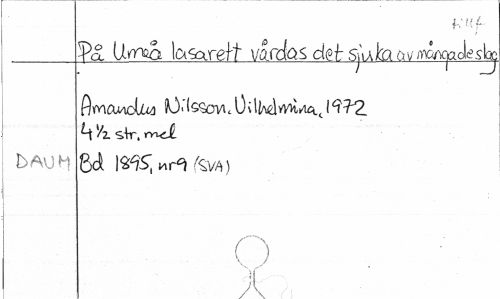 tillf
På Umeå lasarett vårdas det sjuka av mångade slag
Amandus Nilsson, Vilhelmina, 1972
4 1/2 str, mel
DAUM Bd 1895, nr 9 (SVA)